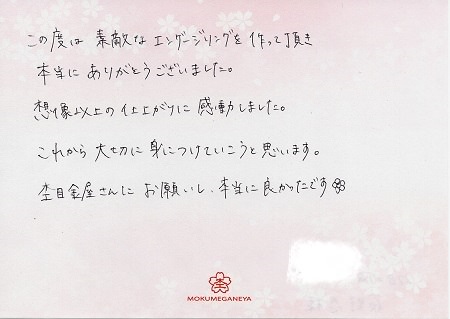 この度は 素敵な エンゲージリングを 作って頂き
本当に ありがとうございました。
想像以上の仕上がりに 感動しました。
これから 大切に 身につけていこうと思います。
杢目金屋さんに お願いし、本当に良かったです
杢
MOKUMEGANEYA